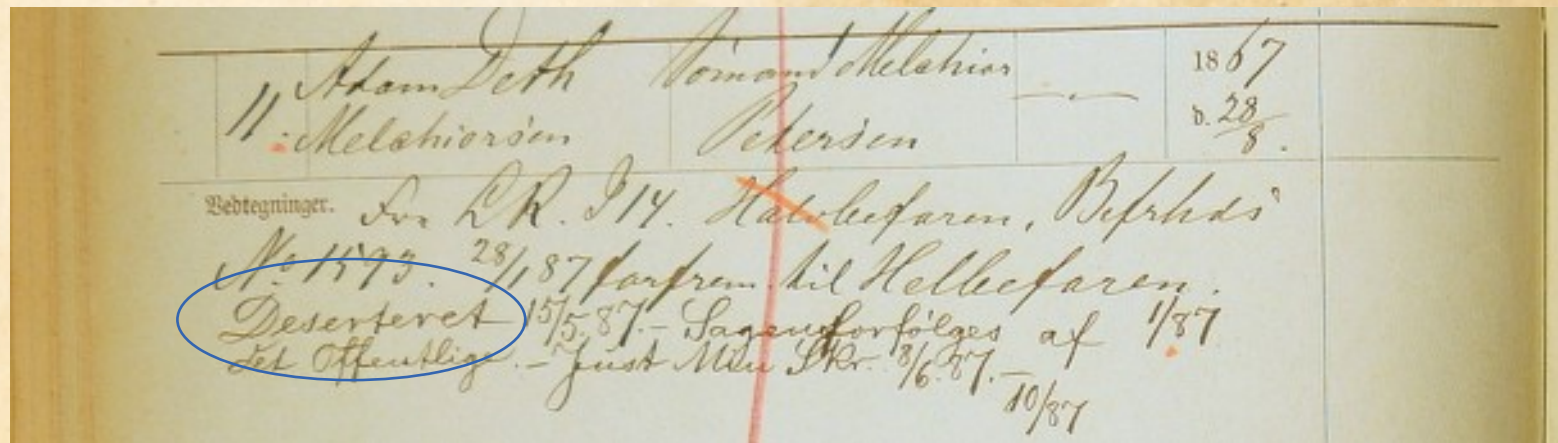 Adam Deth Sömand Melchior 1867
11. Melchiorsen Petersen d. 28/8.
Vedtegninger. Fra L R. I 14. Halvbefaren, Befrhds
No 1593. 28/1 87 forfrem. til Helbefaren.
Deserteret 15/5 87. - Sagen forfölges af 1/87
det Offentlige. - Just Min Skr. 8/6 87. -
10/87